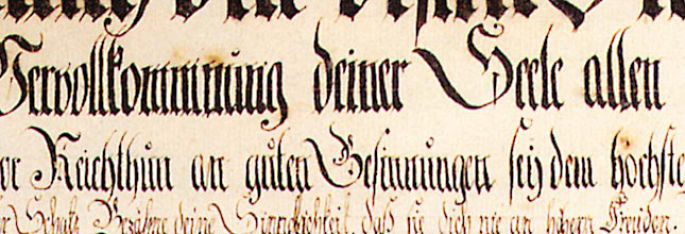 Vervollkommnung deiner Seele allen
or Reichthum an guten Gesinnungen sey dem höchste
Schatz Bezähme deine Sinnlichkeit, daß sie dich nie an höhern Freuden.